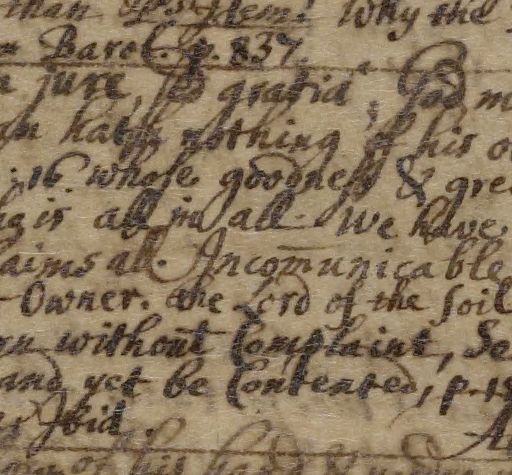 than Item. Why the
Barol. p. 837.
jure, sed gratia; God
hath nothing of his
: 16. whose goodness & gre
is all in all. We have
aims all. Incom̄unicable
Owner. the Lord of the soil
without Complaint, de
and yet be Contented, p. 1
Ibid.
of his hand